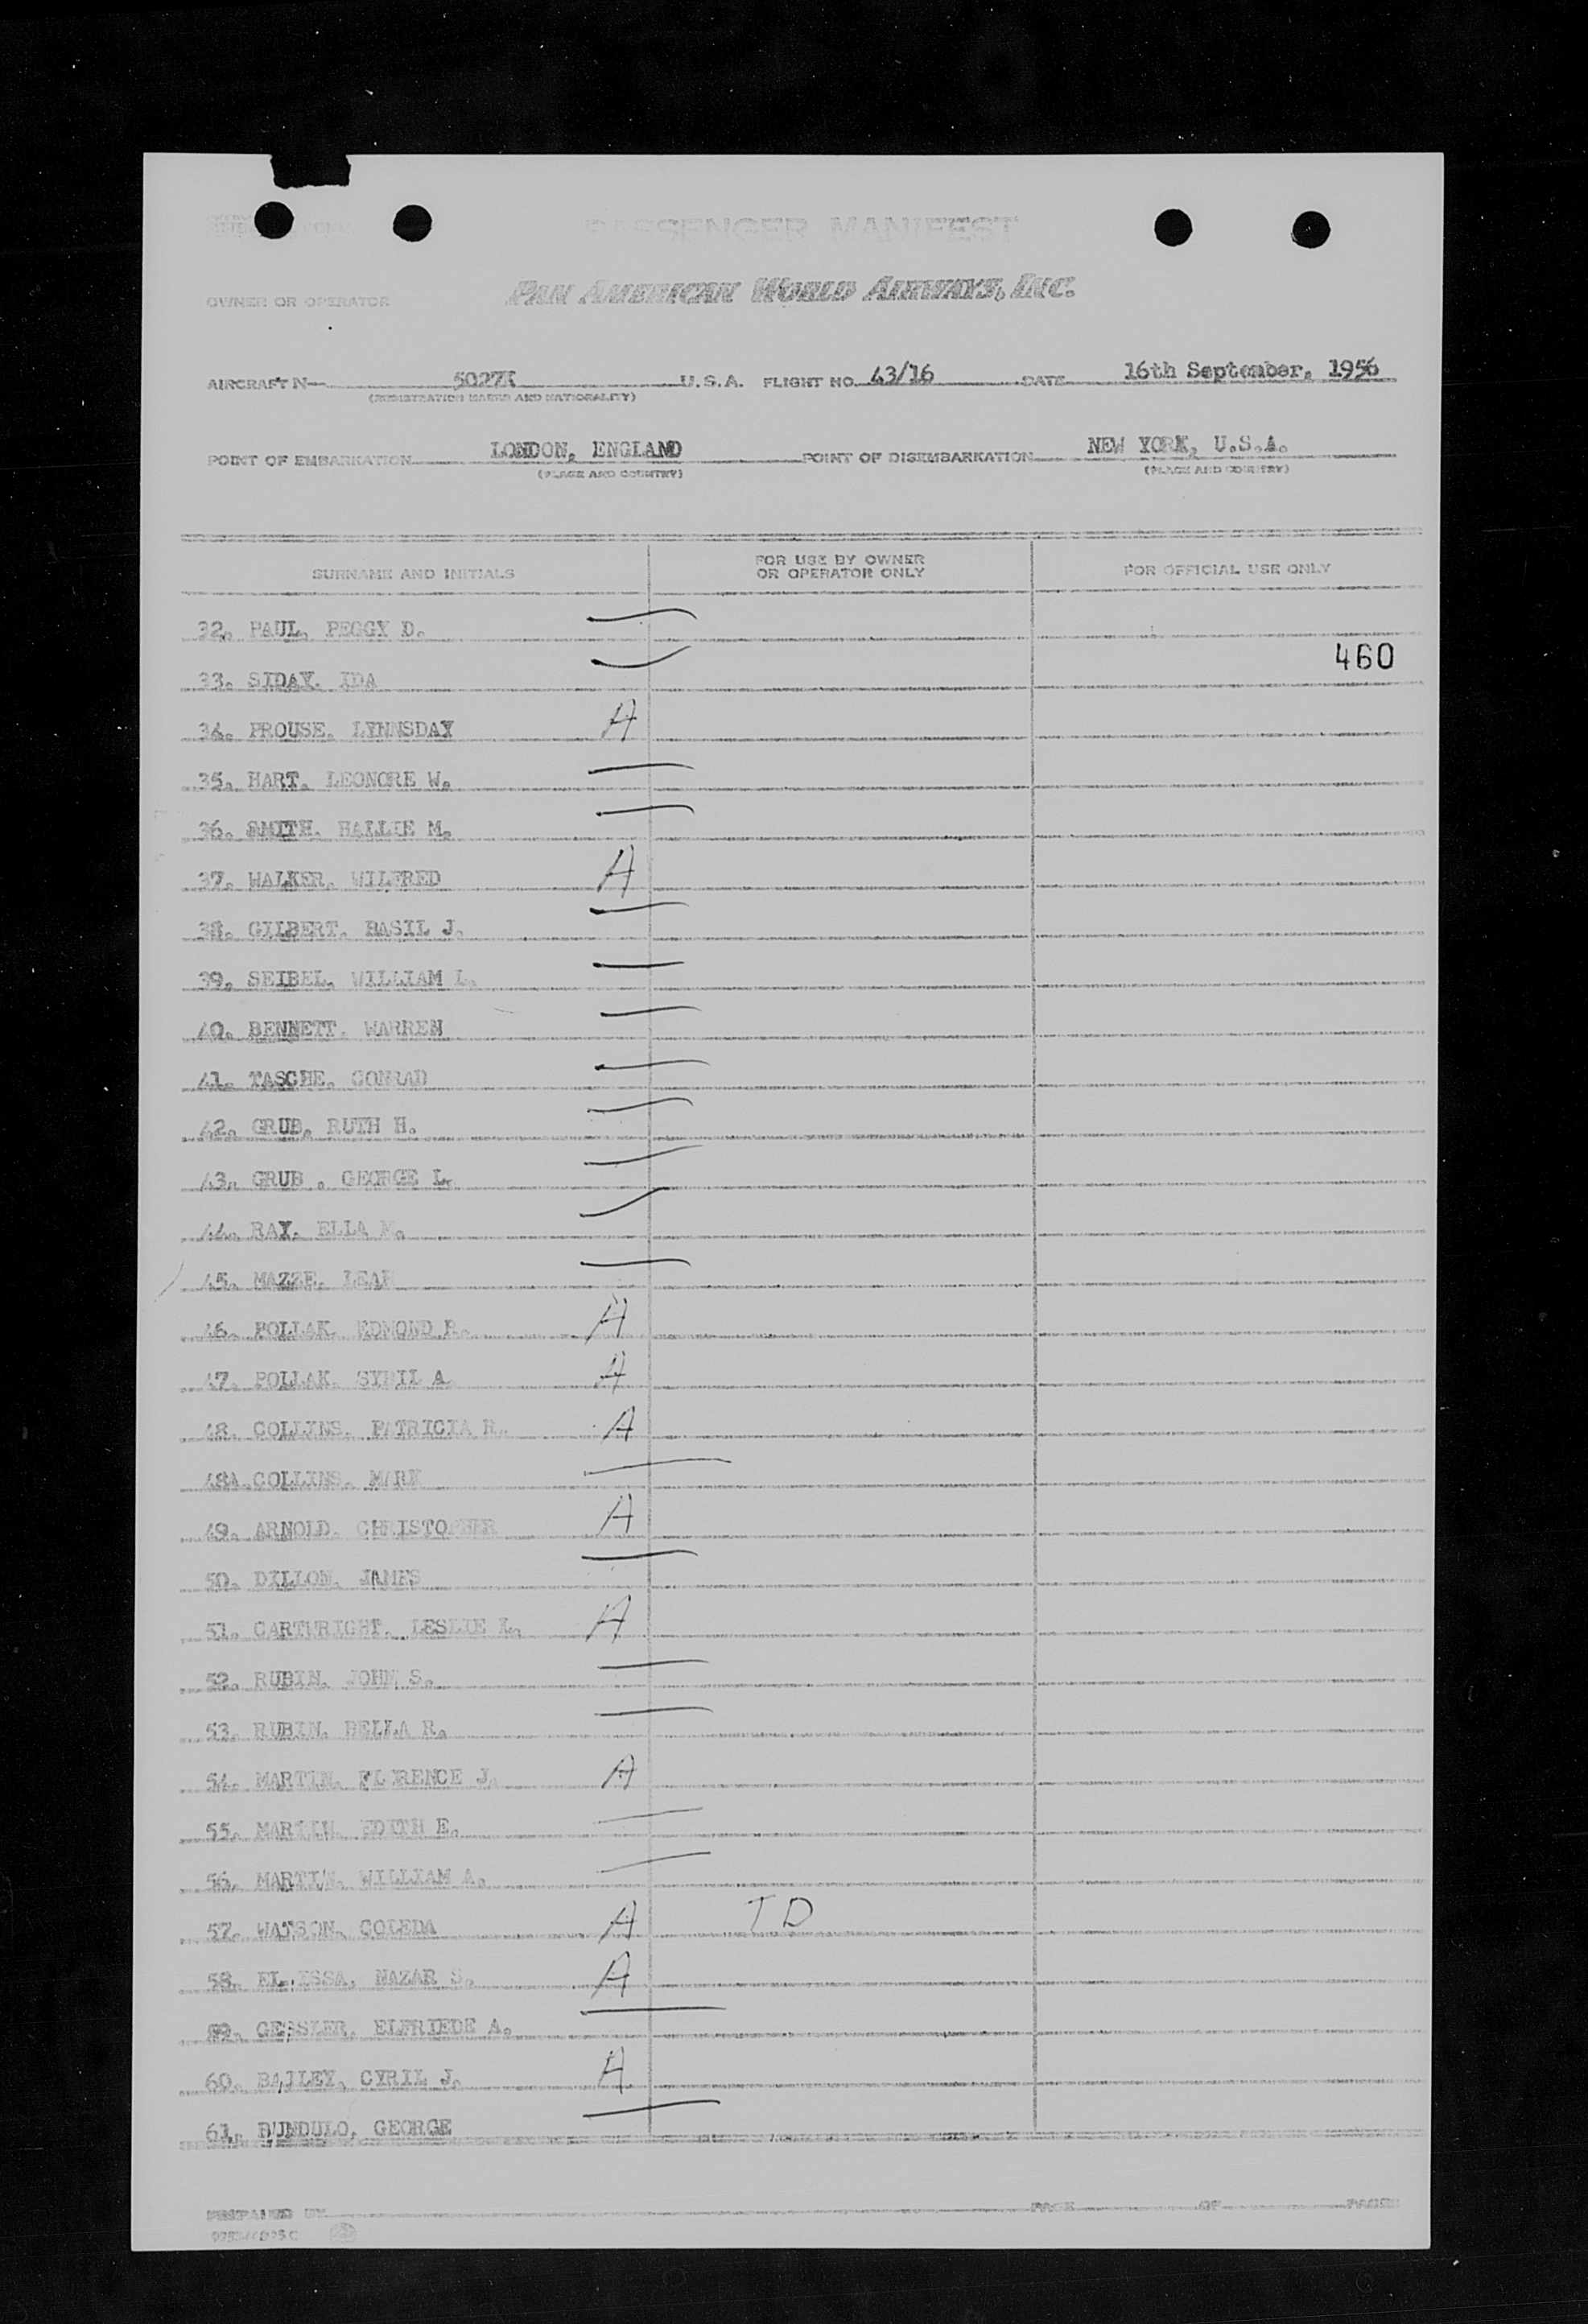 PASSENGER MANIFEST
OWNER OR OPERATOR PAN AMERICAN WORLD AIRWAYS, INC.
AIRCRAFT N— 5027K U.S.A. FLIGHT NO. 43/16 DATE 16th September, 1956
(REGISTRATION MARKS AND NATIONALITY)
POINT OF EMBARKATION LONDON, ENGLAND POINT OF DISEMBARKATION NEW YORK, U.S.A.
(PLACE AND COUNTRY) (PLACE AND COUNTRY)
SURNAME AND INITIALS FOR USE BY OWNER OR OPERATOR ONLY FOR OFFICIAL USE ONLY
32. PAUL, PEGGY D.
460
33. SIDAY. IDA
34. PROUSE. LYNNSDAY A
35. HART. LEONORE W.
36. SMITH. HALLIE M.
37. WALKER. WILFRED A
38. GILBERT. BASIL J.
39. SEIBEL. WILLIAM L.
40. BENNETT. WARREN
41. TASCHE. CONRAD
42. GRUB. RUTH H.
43. GRUB . GEORGE L.
44. RAY. ELLA M.
45. MAZZE. LEAH
46. POLLAK. EDMOND R. A
47. POLLAK. SYBIL A. A
48. COLLINS. PATRICIA R. A
48A. COLLINS. MARK
49. ARNOLD. CHRISTOPHER A
50. DILLON. JAMES
51. CARTWRIGHT. LESLIE L. A
52. RUBIN. JOHN S.
53. RUBIN. BELLA R.
54. MARTIN. FLORENCE J. A
55. MARTIN. EDITH E.
56. MARTIN. WILLIAM A.
57. WATSON. COLEDA A T D
58. EL.ESSA, NAZAR S. A
59. GESSLER. ELFRIEDE A.
60. BAILEY, CYRIL J. A
61. BUNDULO, GEORGE
PREPARED BY PAGE OF PAGES